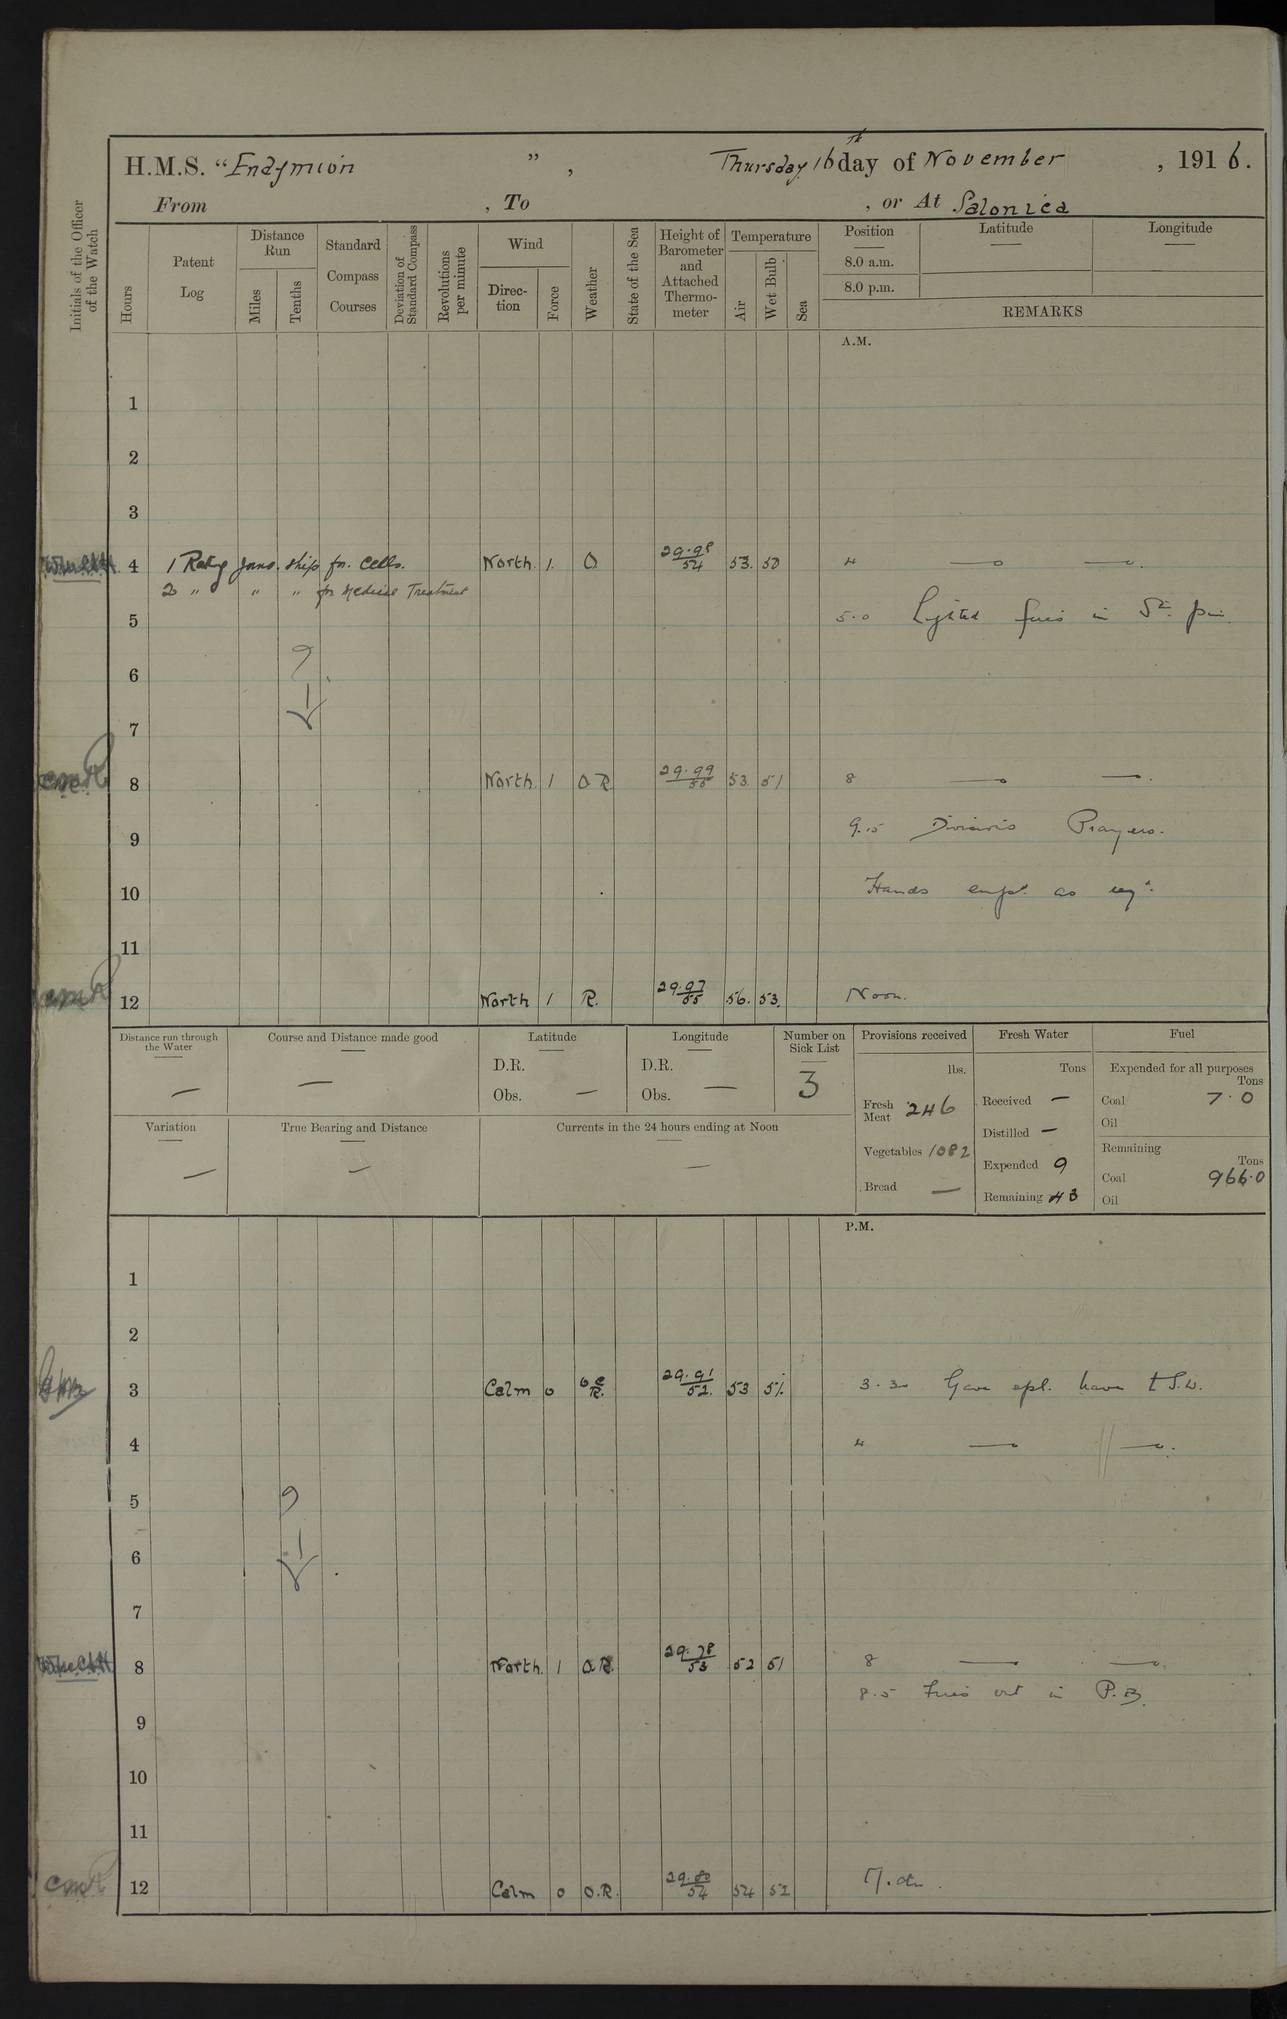 H.M.S. "Endymion", Thursday 16th day of November, 1916.
From , To , or At Salonica
Initials of the Officer of the Watch
Hours
Patent Log
Distance Run
Miles
Tenths
Standard Compass Courses
Deviation of Standard Compass
Revolutions per minute
Wind
Direction
Force
Weather
State of the Sea
Height of Barometer and Attached Thermometer
Temperature
Air
Wet Bulb
Sea
Position
8.0 a.m.
8.0 p.m.
Latitude
Longitude
REMARKS
A.M.
1
2
3
4 1 Rating joins ship for Cells. North 1. O. 29.98/54 53. 50 4
2 " " " for Medical Treatment
5 5.0 Lighted fires in
6
7
8 North 1 O R 29.99/55 53. 51 8
9 9.15 Divisions Prayers.
10 Hands empd. as reqd.
11
12 North 1 R. 29.97/55 56. 53. Noon.
Distance run through the Water —
Course and Distance made good —
Latitude
D.R.
Obs. —
Longitude
D.R.
Obs. —
Number on Sick List
3
Provisions received
lbs.
Fresh Meat 246
Vegetables 1082
Bread —
Fresh Water
Tons
Received —
Distilled —
Expended 9
Remaining 43
Fuel
Expended for all purposes
Tons
Coal 7.0
Oil
Remaining
Tons
Coal 966.0
Oil
Variation —
True Bearing and Distance —
Currents in the 24 hours ending at Noon —
P.M.
1
2
3 Calm 0 29.91/52. 53 51. 3.30 Gave spl. leave t
4 4
5
6
7
8 North. 1 O.R. 29.78/53 52 51 8
8.5 Fires out in P.B.
9
10
11
12 Calm 0 O.R. 29.80/54 54 52